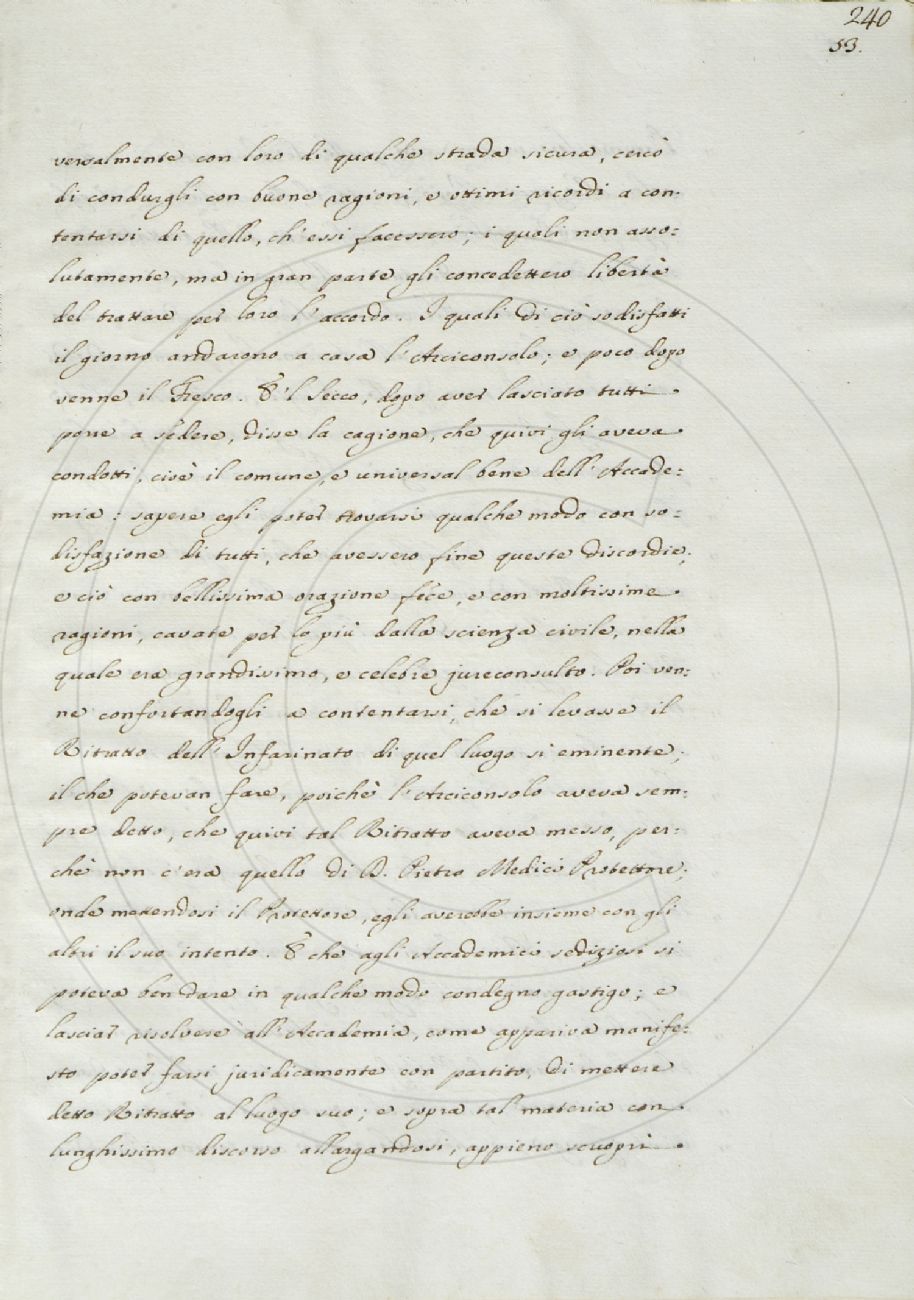 240
53.
versalmente con loro di qualche strada sicura, cercò
di condurgli con buone ragioni, e ottimi ricordi a con-
tentarsi di quello, ch'essi facessero; i quali non asso=
lutamente, ma in gran parte gli concedettero libertà
del trattare per loro l'accordo. I quali di ciò sodisfatti
il giorno andarono a casa l'Arciconsolo; e poco dopo
venne il Fresco. E 'l Secco, dopo aver lasciato tutti
porre a sedere, disse la cagione, che quivi gli aveva
condotti, cioè il comune, e universal bene dell'Accade=
mia: sapere egli poter trovarsi qualche modo con so=
disfazione di tutti, che avessero fine queste discordie;
e ciò con bellissima orazione fece, e con moltissime
ragioni, cavate per lo più dalla scienza civile, nella
quale era grandissimo, e celebre jureconsulto. Poi ven-
ne confortandogli a contentarsi, che si levasse il
Ritratto dell'Infarinato di quel luogo sì eminente;
il che potevan fare, poichè l'Arciconsolo aveva sem-
pre detto, che quivi tal Ritratto aveva messo, per-
chè non c'era quello di D. Pietro Medici Protettore;
onde mettendosi il Protettore, egli averebbe insieme con gli
altri il suo intento. E che agli Accademici sediziosi si
poteva ben dare in qualche modo condegno gastigo; e
lasciar risolvere all'Accademia, come appariva manife=
sto poter farsi juridicamente con partito, di mettere
detto Ritratto al luogo suo; e sopra tal materia con
lunghissimo discorso allargandosi, appieno scuoprì